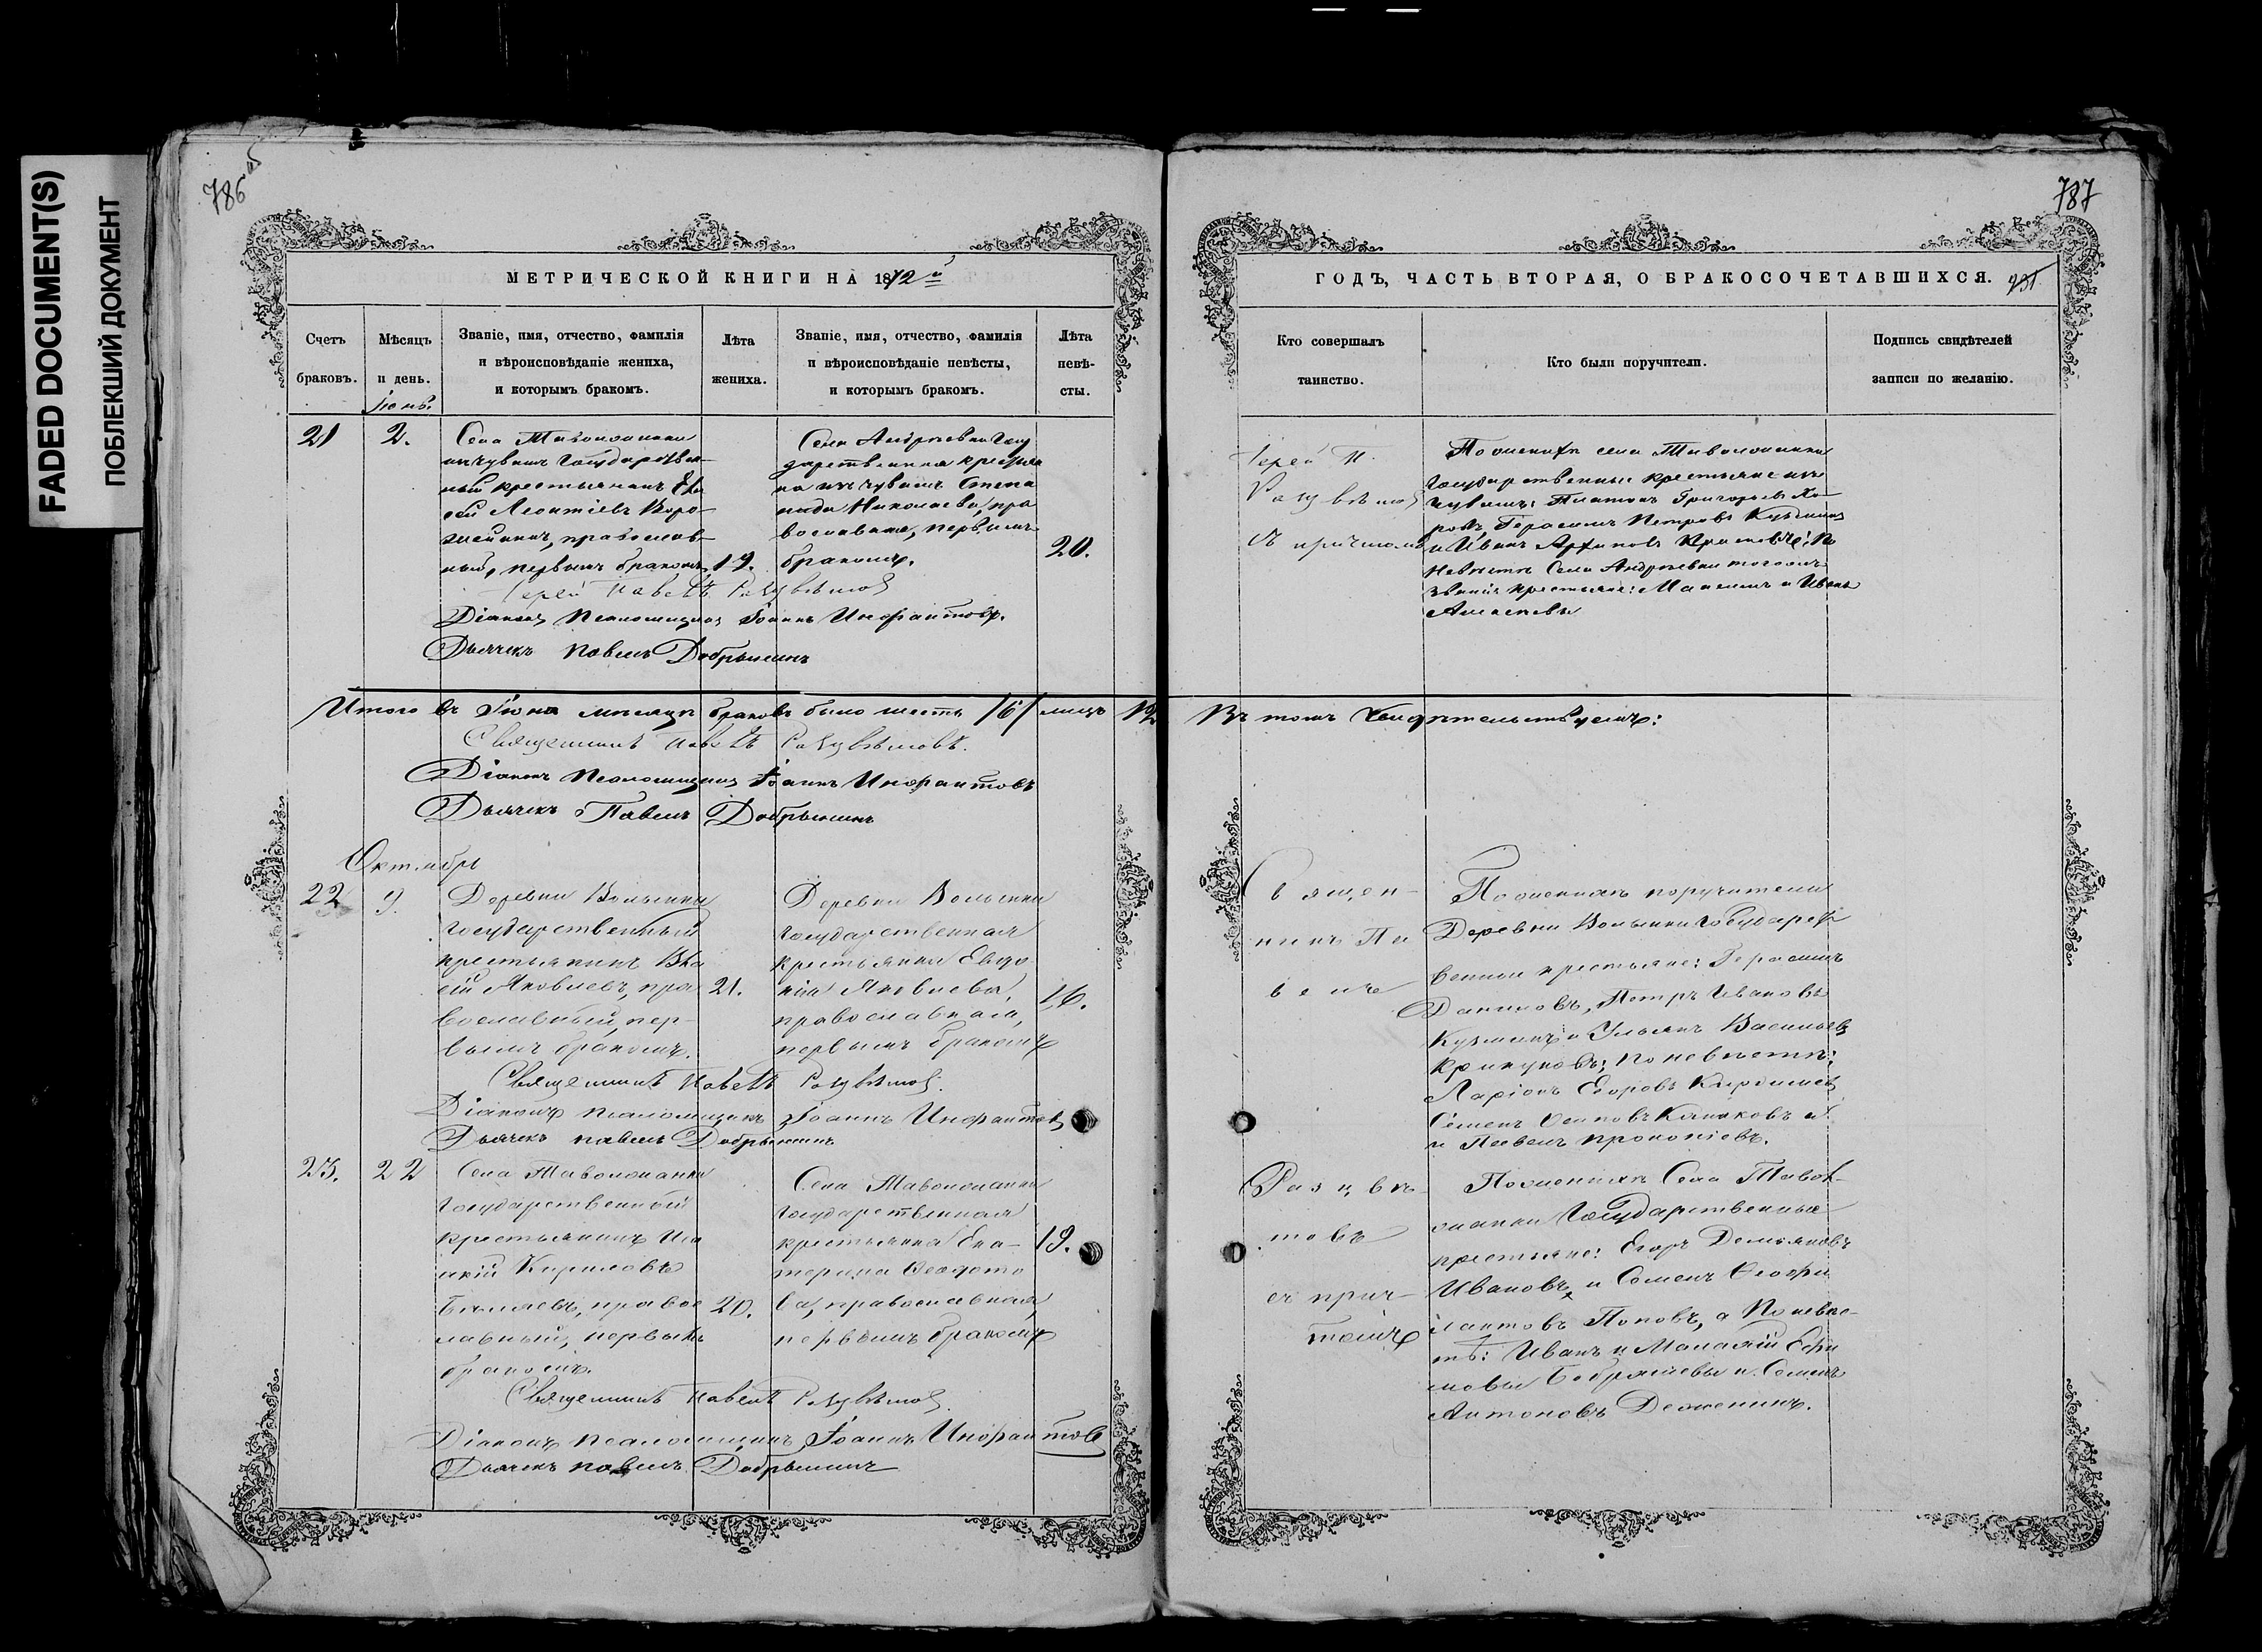 FADED DOCUMENT(S)
ПОБЛЕКШИЙ ДОКУМЕНТ
786 об
787
МЕТРИЧЕСКОЙ КНИГИ НА 1872й
Счетъ
браковъ.
Мѣсяцъ
и день.
Іюнь.
Званіе, имя, отчество, фамилія
и вѣроисповѣданіе жениха,
и которымъ бракомъ.
Лѣта
жениха.
Званіе, имя, отчество, фамилія
и вѣроисповѣданіе невѣсты,
и которымъ бракомъ.
Лѣта
невѣ-
сты.
21
2.
Села Таволжанки
изъ чувашъ Государствен-
ный крестьянинъ
Леонтіевъ
православ-
ный, первымъ бракомъ
19.
Села Андреевки Госу
дарственная крестьян
ка изъ чувашъ Степа
нида Николаева, пра
вославная, первымъ
бракомъ.
20.
Іерей Павелъ Разцвѣтовъ
Діаконъ Псаломщикъ Іоаннъ Инфантовъ.
Дьячекъ Павелъ Добрынинъ
Итого въ Іюнѣ мѣсяцѣ браковъ было шесть /6/ лицъ 12
Священникъ Павелъ Разцвѣтовъ.
Діаконъ Псаломщикъ Іоаннъ Инфантовъ
Дьячекъ Павелъ Добрынинъ
Октябрь
22
9.
Деревни Волынки
государственный
крестьянинъ
Яковлевъ, пра
вославный, пер-
вымъ бракомъ.
21.
Деревни Волынки
государственная
крестьянка Евдо
кія Яковлева,
православная,
первымъ бракомъ
16.
Священникъ Павелъ Разцвѣтовъ.
Діаконъ псаломщикъ Іоаннъ Инфантовъ
Дьячекъ Павелъ Добрынинъ
23.
22
Села Таволжанки
Государственный
крестьянинъ Иса
акій Кириловъ
Бѣляевъ, правос
лавный, первымъ
бракомъ.
20.
Села Таволжанки
Государственная
крестьянка Ека-
терина Ѳеодото
ва, православная
первымъ бракомъ
19.
Священникъ Павелъ Разцвѣтовъ.
Діаконъ псаломщикъ Іоаннъ Инфантовъ
Дьячекъ Павелъ Добрынинъ
ГОДЪ, ЧАСТЬ ВТОРАЯ, О БРАКОСОЧЕТАВШИХСЯ.
Кто совершалъ
таинство.
Кто были поручители.
Подпись свидѣтелей
записи по желанію.
Іерей П.
Разцвѣтовъ
съ причтомъ
По женихѣ села Таволжанки
Государственные крестьяне изъ
чувашъ: Платонъ Григорьевъ
Герасимъ Петровъ Кузьминъ
и Иванъ Архиповъ По
невѣстѣ Села Андреевки того же
званія крестьяне: Максимъ и Иванъ
Алексѣевы
Въ томъ свидѣтельствуемъ:
Священ-
никъ Па
велъ
По женихѣ поручители
Деревни Волынки Государст
венные крестьяне: Герасимъ
Даниловъ, Петръ Ивановъ
Кузминъ и Ульянъ Васильевъ
по невѣстѣ:
Ларіонъ Егоровъ
Семенъ Осиповъ
и Павелъ Прокопіевъ.
Разцвѣ-
товъ
съ прич-
томъ
По женихѣ Села Тавол-
жанки Государственные
крестьяне: Егоръ Демьяновъ
Ивановъ, и Семенъ Ѳеофи
лактовъ Поповъ, а По невѣс-
тѣ: Иванъ и Малафій Ефи
мовы и Семенъ
Антоновъ